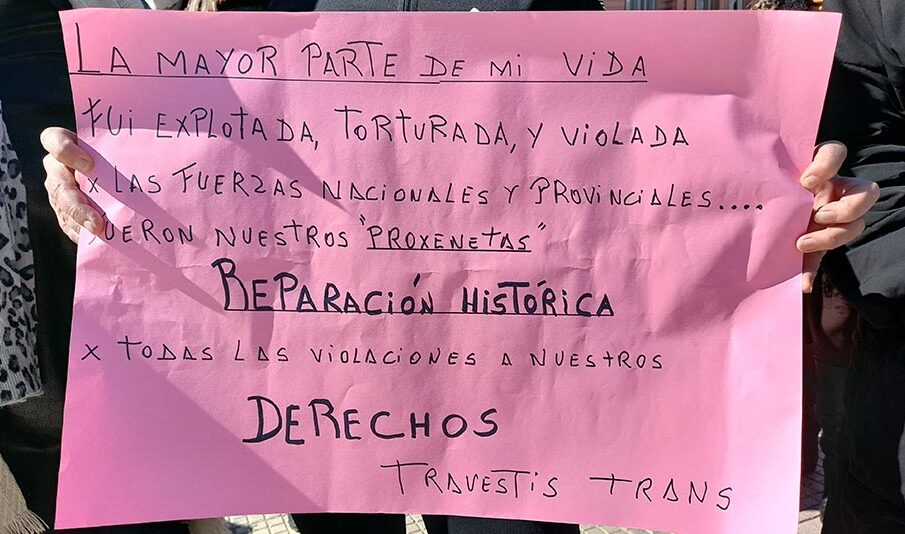 LA MAYOR PARTE DE MI VIDA
FUI EXPLOTADA, TORTURADA, Y VIOLADA
X LAS FUERZAS NACIONALES Y PROVINCIALES....
FUERON NUESTROS "PROXENETAS"
REPARACIÓN HISTÓRICA
X TODAS LAS VIOLACIONES A NUESTROS
DERECHOS
TRAVESTIS TRANS